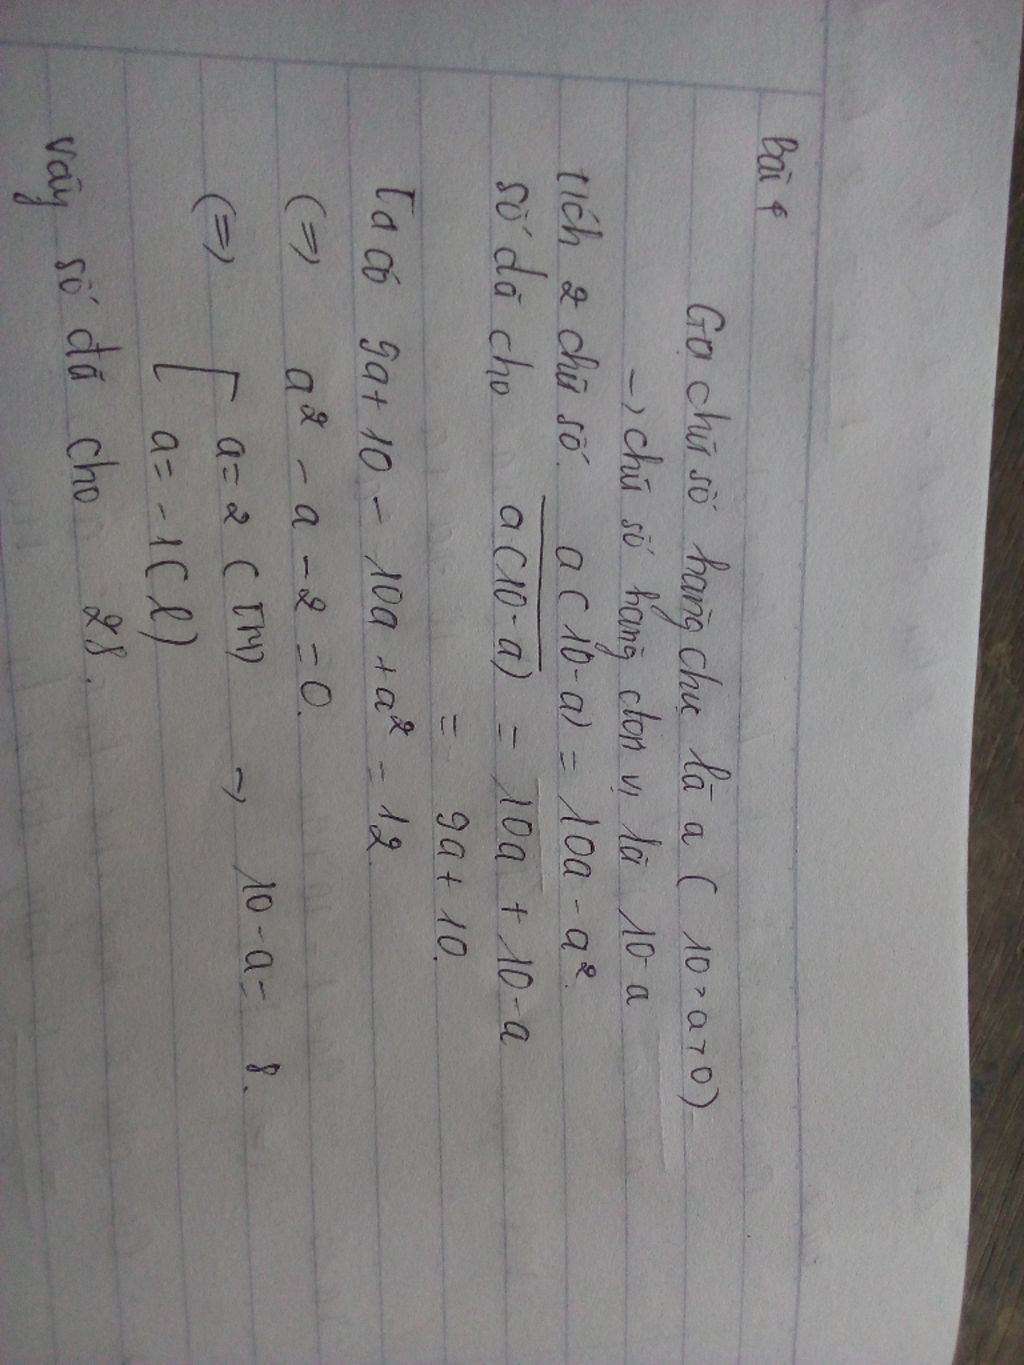 Bài 4
Gọi chữ số hàng chục là a ( 10 > a > 0)
→ chữ số hàng đơn vị là 10-a
tích 2 chữ số a(10-a) = 10a - a²
số đã cho a(10-a) = 10a + 10-a
= 9a + 10.
Ta có 9a + 10 - 10a + a² = 12
(=) a² - a - 2 = 0
(=) [ a = 2 (TM) → 10-a = 8.
a = -1 (l)
vậy số đã cho 28.